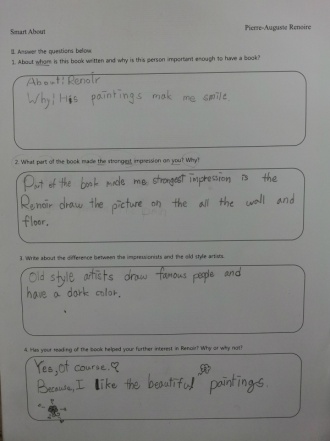 Smart About
Pierre-Auguste Renoire
B. Answer the questions below.
1. About whom is this book written and why is this person important enough to have a book?
About! Renoir
Why! His paintings mak me smile.
2. What part of the book made the strongest impression on you? Why?
Part of the book made me strongest impression is the
Renoir draw the picture on the all the wall and
floor.
3. Write about the difference between the impressionists and the old style artists.
Old style artists draw famous people and
have a dark color.
4. Has your reading of the book helped your further interest in Renoir? Why or why not?
Yes, Of course.
Because, I like the beautiful paintings.